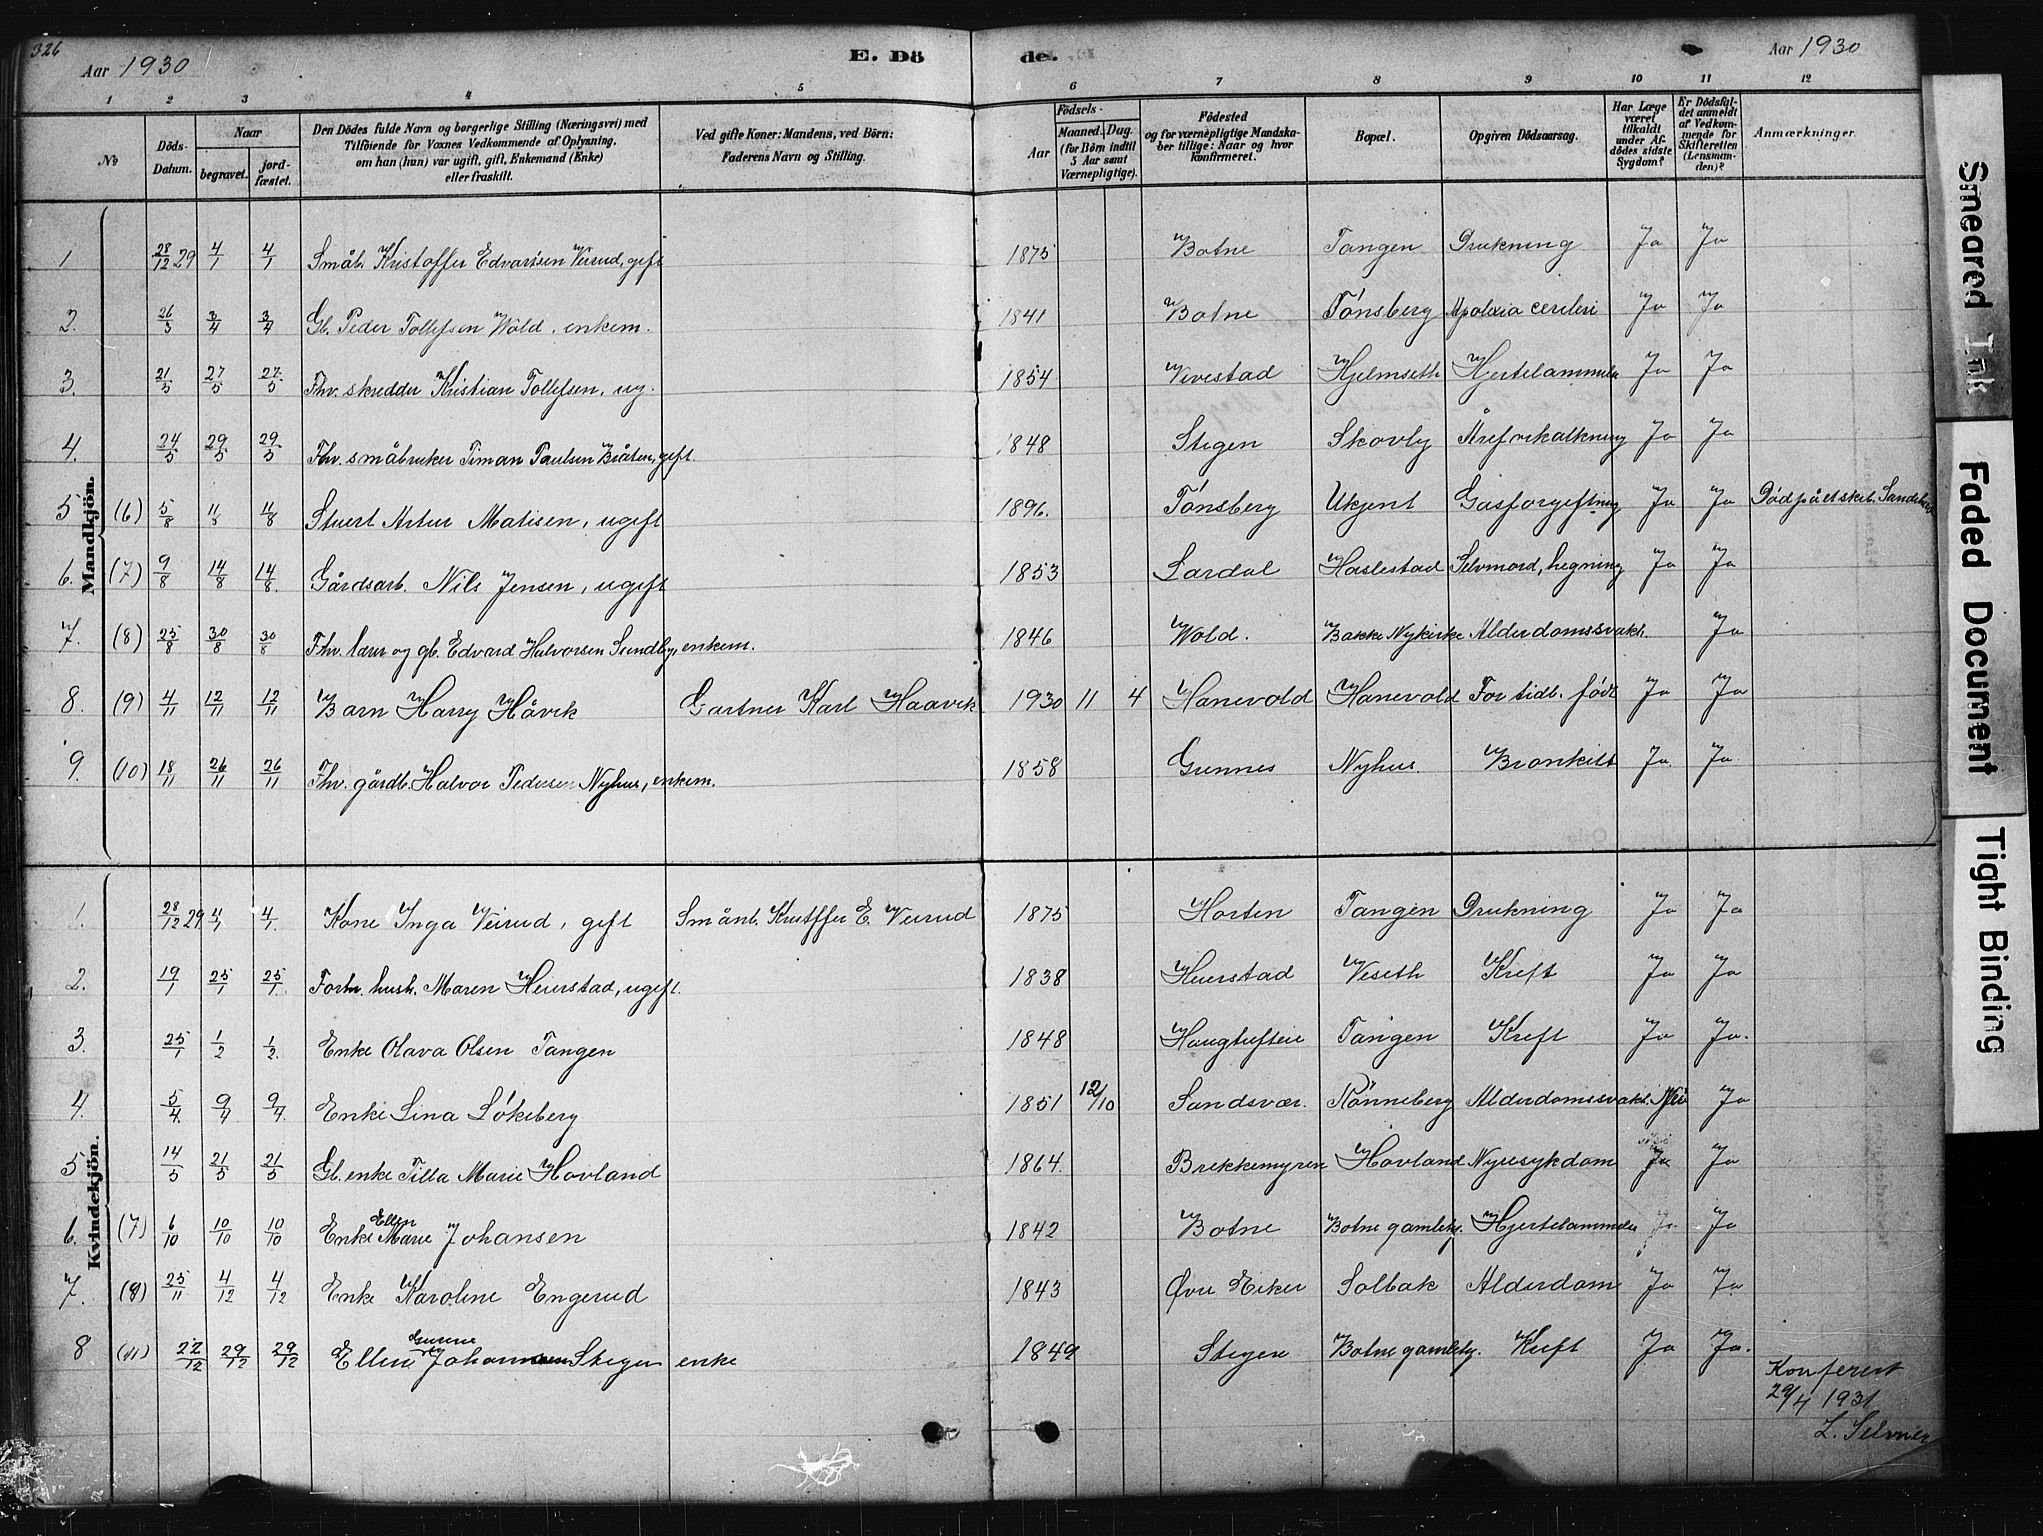 326
Aar 1930 E. Dö de. Aar 1930
1 2 3 4 5 6 7 8 9 10 11 12
No
Döds-Datum.
Naar
begravet.
jord-fæstet.
Den Dödes fulde Navn og borgerlige Stilling (Næringsvei) med
Tilföiende for Voxnes Vedkommende af Oplysning.
om han (hun) var ugift, gift, Enkemand (Enke)
eller fraskilt.
Ved gifte Koner: Mandens, ved Börn:
Faderens Navn og Stilling.
Födsels-
Aar
Maaned. Dag.
(for Börn indtil
5 Aar samt
Værnepligtige).
Födested
og for værnepligtige Mandska-
ber tillige: Naar og hvor
konfirmeret.
Bopæl.
Opgiven Dödsaarsag.
Har Læge
været
tilkaldt
under Af-
dödes sidste
Sygdom?
Er Dödsfal-
det anmeldt
af Vedkom-
mende for
Skifteretten
(Lensman-
den)?
Anmærkninger.
Mandkjön.
1 28/12 29 4/1 4/1 Småb. Kristoffer Edvardsen Veirud, gift 1875 Botne Tangen Drukning Ja Ja
2. 26/3 3/4 3/4 Gb. Peder Tollefsen Wold, enkem. 1841 Botne Tønsberg Apolexia cereleri Ja Ja
3. 21/5 27/5 27/5 Fhv. skredder Kristian Tollefsen, ug. 1854 Vivestad Hjelmseth Hjertelammelse Ja Ja
4. 24/5 29/5 29/5 Fhv. småbruker Timan Paulsen Bråten, gift. 1848 Stigen Skovly Åreforkalkning Ja Ja
5 (6) 5/8 11/8 11/8 Stuert Artur Matisen, ugift 1896. Tønsberg Ukjent Gasforgiftning Ja Ja Død på et skib.
6. (7) 9/8 14/8 14/8. Gårdsarb. Nils Jensen, ugift 1853 Lardal Haslestad Selvmord, hegning Ja Ja
7. (8) 25/8 30/8 30/8 Fhv. lærer og gb. Edvard Halvorsen Sundby, enkem. 1846 Wold. Bakke Nykirke Alderdomssvakh. Ja
8. (9) 4/11 12/11 12/11 Barn Harry Håvik Gartner Karl Haavik 1930 11 4 Hanevold Hanevold For tidl. født Ja Ja
9. (10) 18/11 26/11 26/11 Fhv. gårdb. Halvor Pedersen Nyhus, enkem. 1858 Gunnes Nyhus. Bronkitt Ja. Ja.
Kvindekjön.
1. 28/12 29 4/1 4/1. Kone Inga Veirud, gift Småb. Kristoffer E. Veirud 1875 Horten Tangen Drukning Ja Ja
2. 19/1 25/1 25/1. Forh. hush. Maren Heierstad, ugift. 1838 Heierstad Veseth Kreft Ja Ja
3. 25/1 1/2 1/2. Enke Olava Olsen Tangen 1848 Haugtufteie Tangen Kreft Ja Ja.
4. 5/4 9/4 9/4 Enke Lina Løkeberg 1851 12/10 Sandsvær. Rønneberg Alderdomssvakh. Nei Ja
5 14/5 21/5 21/5 Gb. enke Tilla Marie Hovland 1864. Brekkemyren Hovland Nyresykdom Ja Ja
6. (7) 6/10 10/10 10/10 Enke Ellen Marie Johansen 1842 Botne Botne gamleh. Hjertelammelse Ja Ja
7. (8) 25/11 4/12 4/12 Enke Karoline Engerud 1843 Øvre Eiker Solbak Alderdom Ja Ja
8 (11) 22/12 29/12 29/12 Ellen Johannsen Stigen enke 1849 Stigen Botne gamleh. Kreft Ja Ja.
Konferert
29/4 1931
L. Selmer
Smeared Ink
Faded Document
Tight Binding